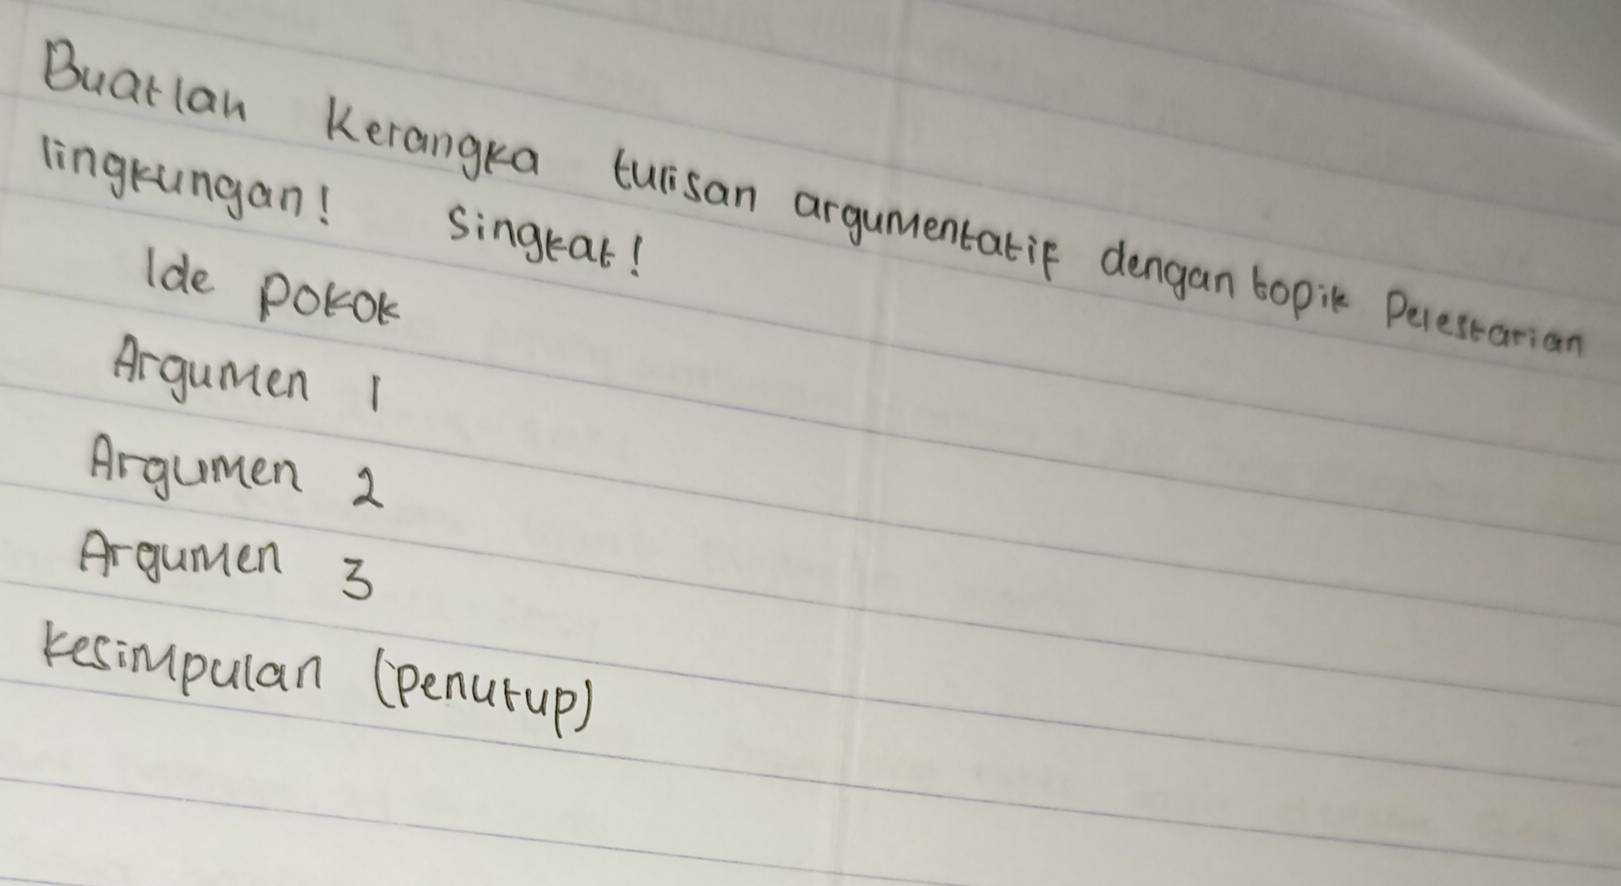 Buatlah Kerangka tulisan argumentatif dengan topik Pelestarian
lingkungan! Singkat!
Ide Pokok
Argumen 1
Argumen 2
Argumen 3
Kesimpulan (penutup)